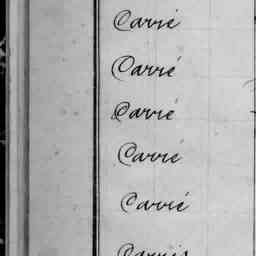 Carrié
Carrié
Carrié
Carrié
Carrié